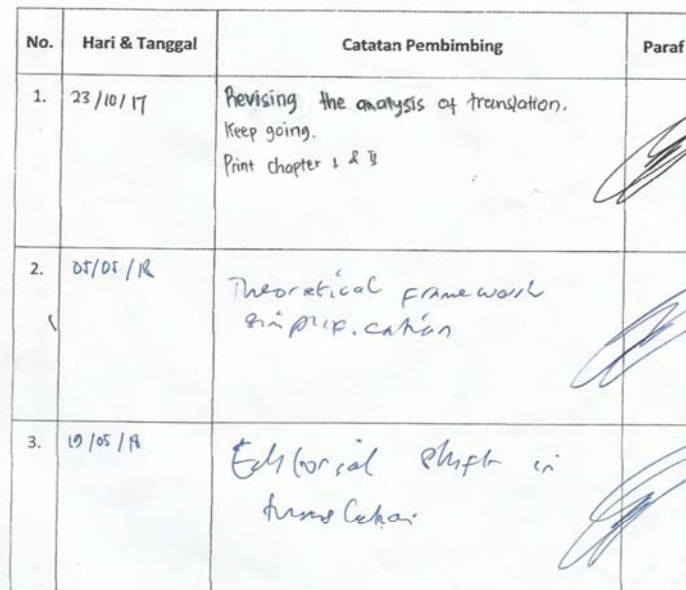 No. Hari & Tanggal Catatan Pembimbing Paraf
1. 23/10/17 Revising the analysis of translation.
Keep going.
Print chapter I & II
2. 05/05/18 Theoretical framework
simplification
3. 19/05/18 Editorial shift in
translation